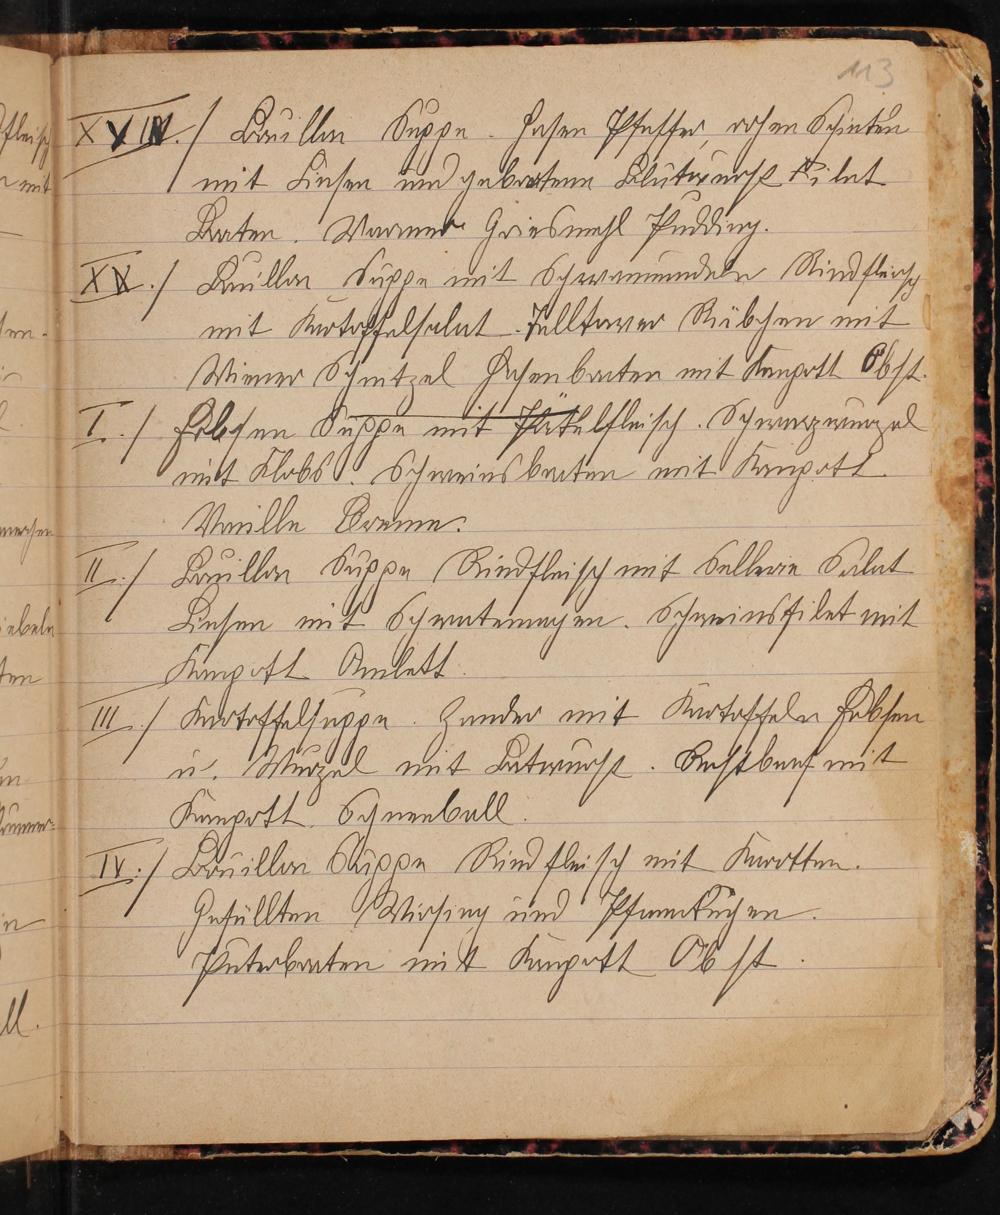 113
XVIV./ Bouillon Suppe. Hasen Pfeffer, rohen Schinken
mit Linsen und gebratene Blutwurst Filet
Braten. Warmer Griesmehl Pudding.
XX./ Buillon Suppe mit Schwammnudeln Rindfleisch
mit Kartoffelsalat. Telltower Rübchen mit
Wiener Schnitzel Hasenbraten mit Kompott Obst.
I./ Erbsen Suppe mit Pökelfleisch. Schwarzwurzel
mit Klobs. Schweinsbraten mit Kompott
Vanille Creme.
II./ Bouillon Suppe Rindfleisch mit Sellerie Salat
Linsen mit Schwatemagen. Schweinsfilet mit
Kompott Omlett.
III./ Kartoffelsuppe. Zander mit Kartoffeln Erbsen
u. Wurzel mit Bratwurst. Rostbeaf mit
Kompott. Schneeball.
IV./ Bouillon Suppe Rindfleisch mit Karotten.
Gefüllten Wirsing und Pfannkuchen.
Puterbraten mit Kompott Obst.